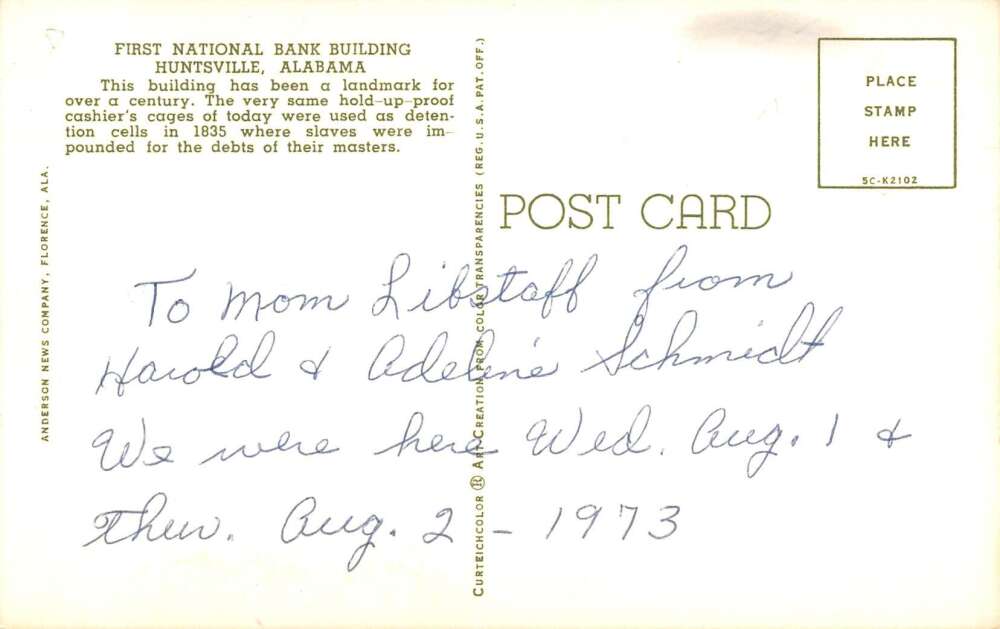 FIRST NATIONAL BANK BUILDING
HUNTSVILLE, ALABAMA
This building has been a landmark for
over a century. The very same hold-up-proof
cashier's cages of today were used as deten-
tion cells in 1835 where slaves were im-
pounded for the debts of their masters.
ANDERSON NEWS COMPANY, FLORENCE, ALA.
CURTEICHCOLOR ® ART-CREATION FROM COLOR TRANSPARENCIES (REG. U.S.A. PAT. OFF.)
PLACE
STAMP
HERE
5C-K2102
POST CARD
To Mom Libstaff from
Harold & Adeline Schmidt
We were here Wed. Aug. 1 &
Thur. Aug. 2 - 1973